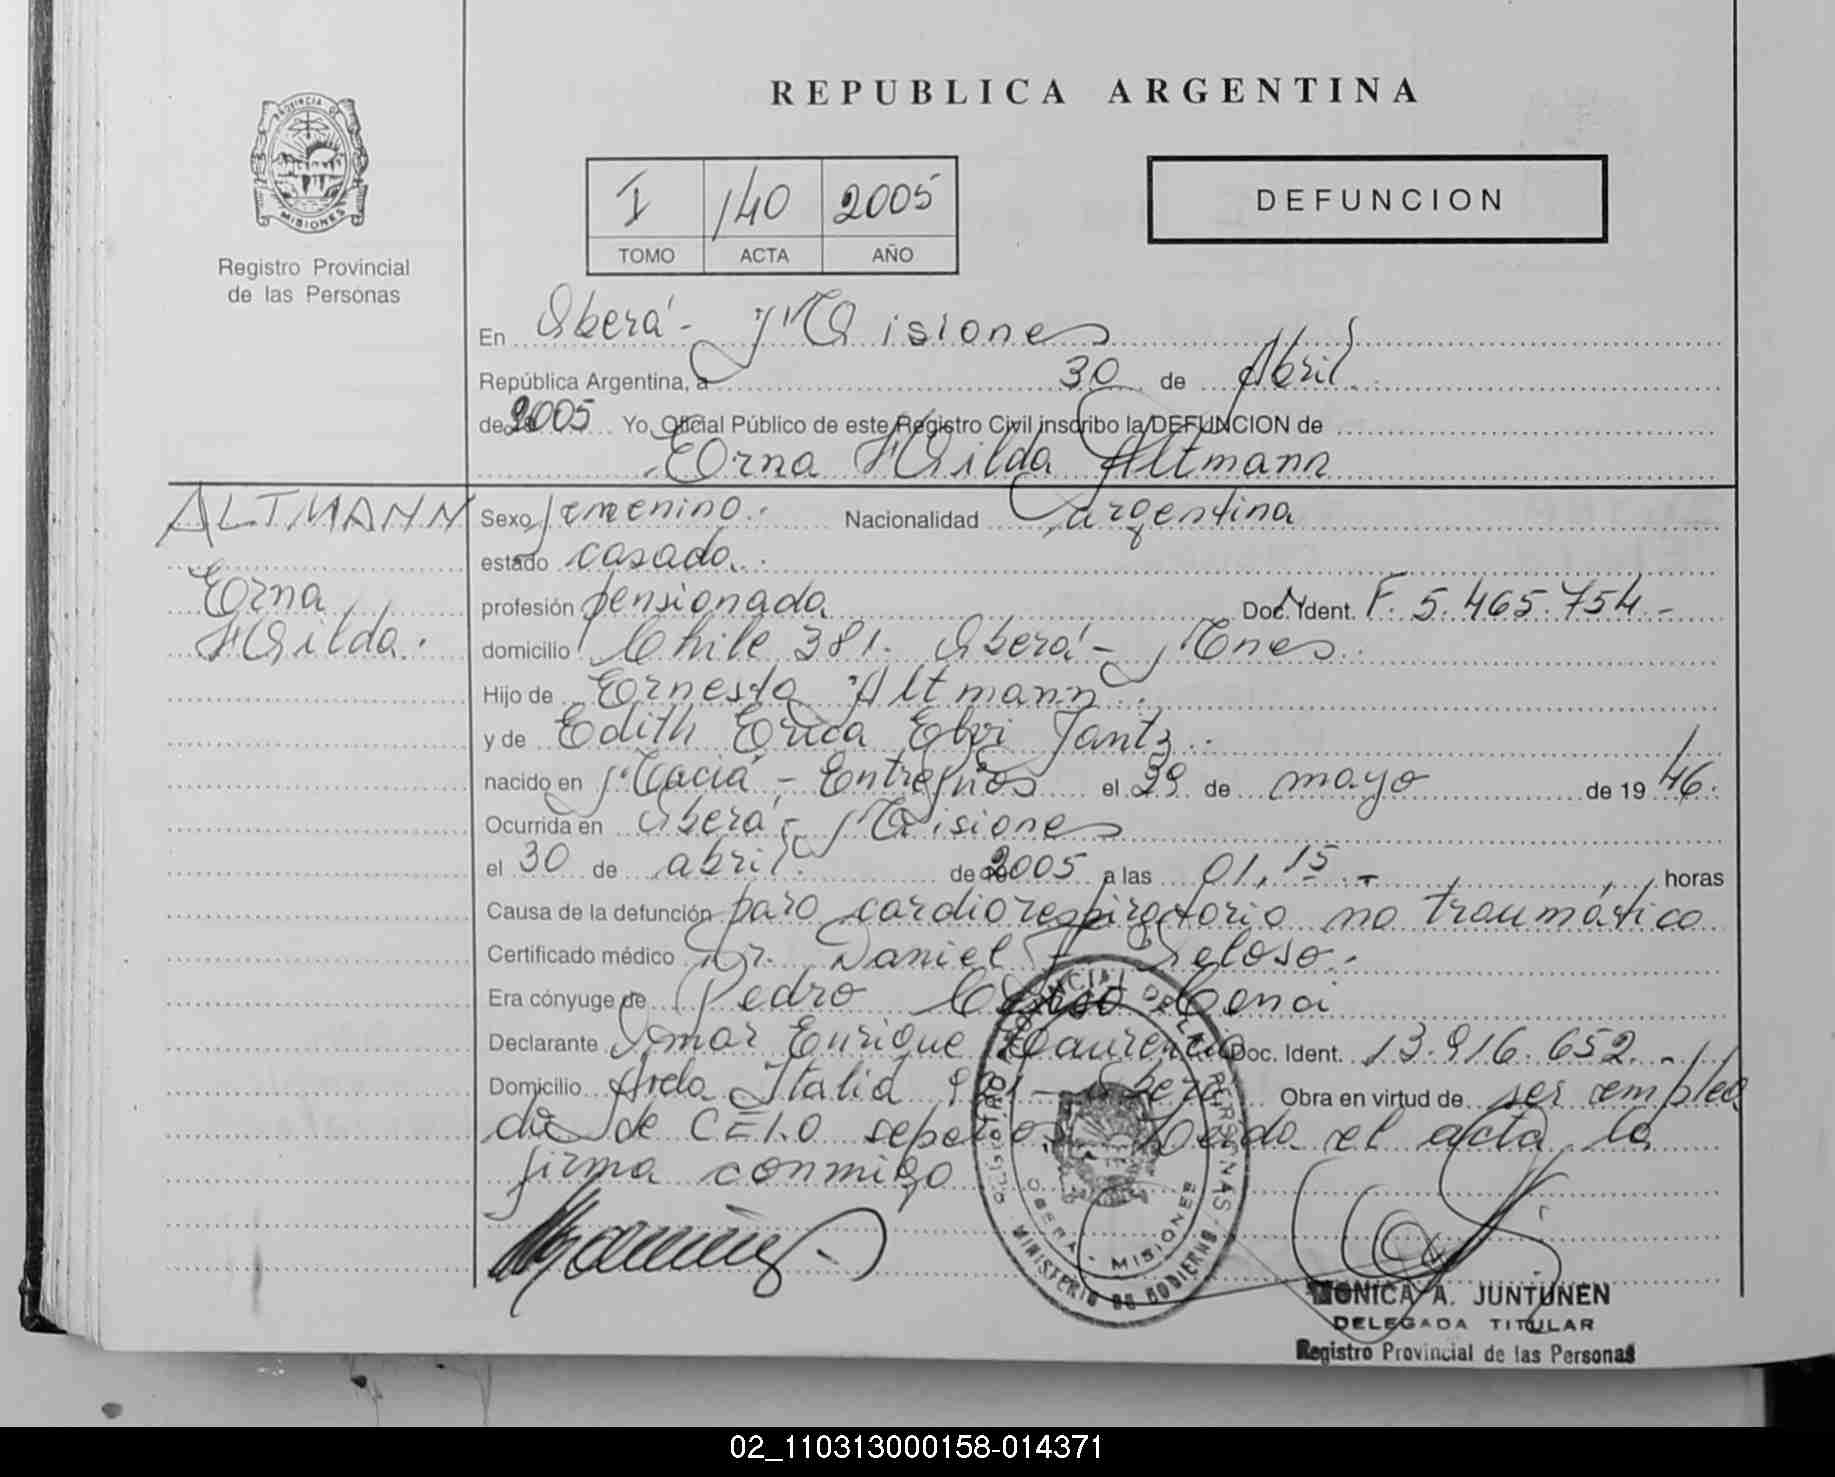 PROVINCIA DE
MISIONES
Registro Provincial
de las Personas
REPUBLICA ARGENTINA
I 140 2005
TOMO ACTA AÑO
DEFUNCION
En Oberá - Misiones
República Argentina, a 30 de Abril
de 2005 Yo, Oficial Público de este Registro Civil inscribo la DEFUNCION de
Erna Hilda Altmann
ALTMANN
Erna
Hilda.
Sexo femenino. Nacionalidad argentina
estado casada.
profesión pensionada Doc. Ident. F. 5.465.754.-
domicilio Chile 381. Oberá - Mnes.
Hijo de Ernesto Altmann.
y de Edith Erica Elvi Jantz.
nacido en Maciá - Entre Ríos el 29 de mayo de 1946.
Ocurrida en Oberá - Misiones
el 30 de abril. de 2005 a las 01,15.- horas
Causa de la defunción paro cardiorespiratorio no traumático
Certificado médico Dr. Daniel F. Veloso.
Era cónyuge de Pedro Cenci
Declarante Omar Enrique Doc. Ident. 13.916.652.-
Domicilio Avda Italia Oberá Obra en virtud de ser emplea
do de C.E.L.O sepelios. Leída el acta la
firma conmigo
REGISTRO PROVINCIAL DE LAS PERSONAS
OBERA - MISIONES
MINISTERIO DE GOBIERNO
MONICA A. JUNTUNEN
DELEGADA TITULAR
Registro Provincial de las Personas
02_110313000158-014371